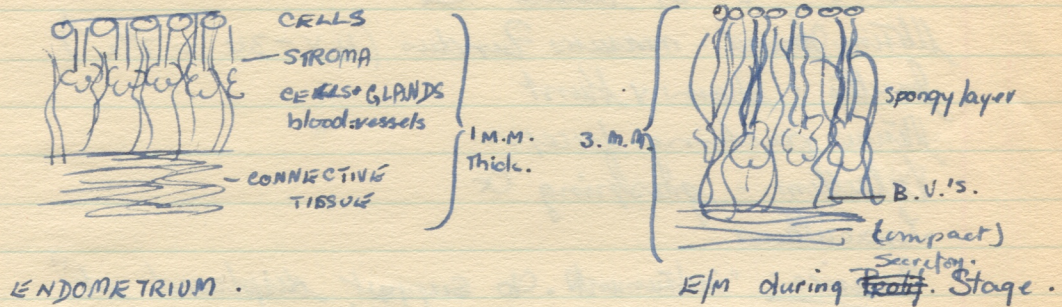 CELLS
STROMA
CELLS+GLANDS
blood-vessels
CONNECTIVE
TISSUE
1 M.M.
Thick.
ENDOMETRIUM.
3. m.m.
Spongy layer
B.V.'s.
(compact)
Secretory.
E/M during Prolif. Stage.